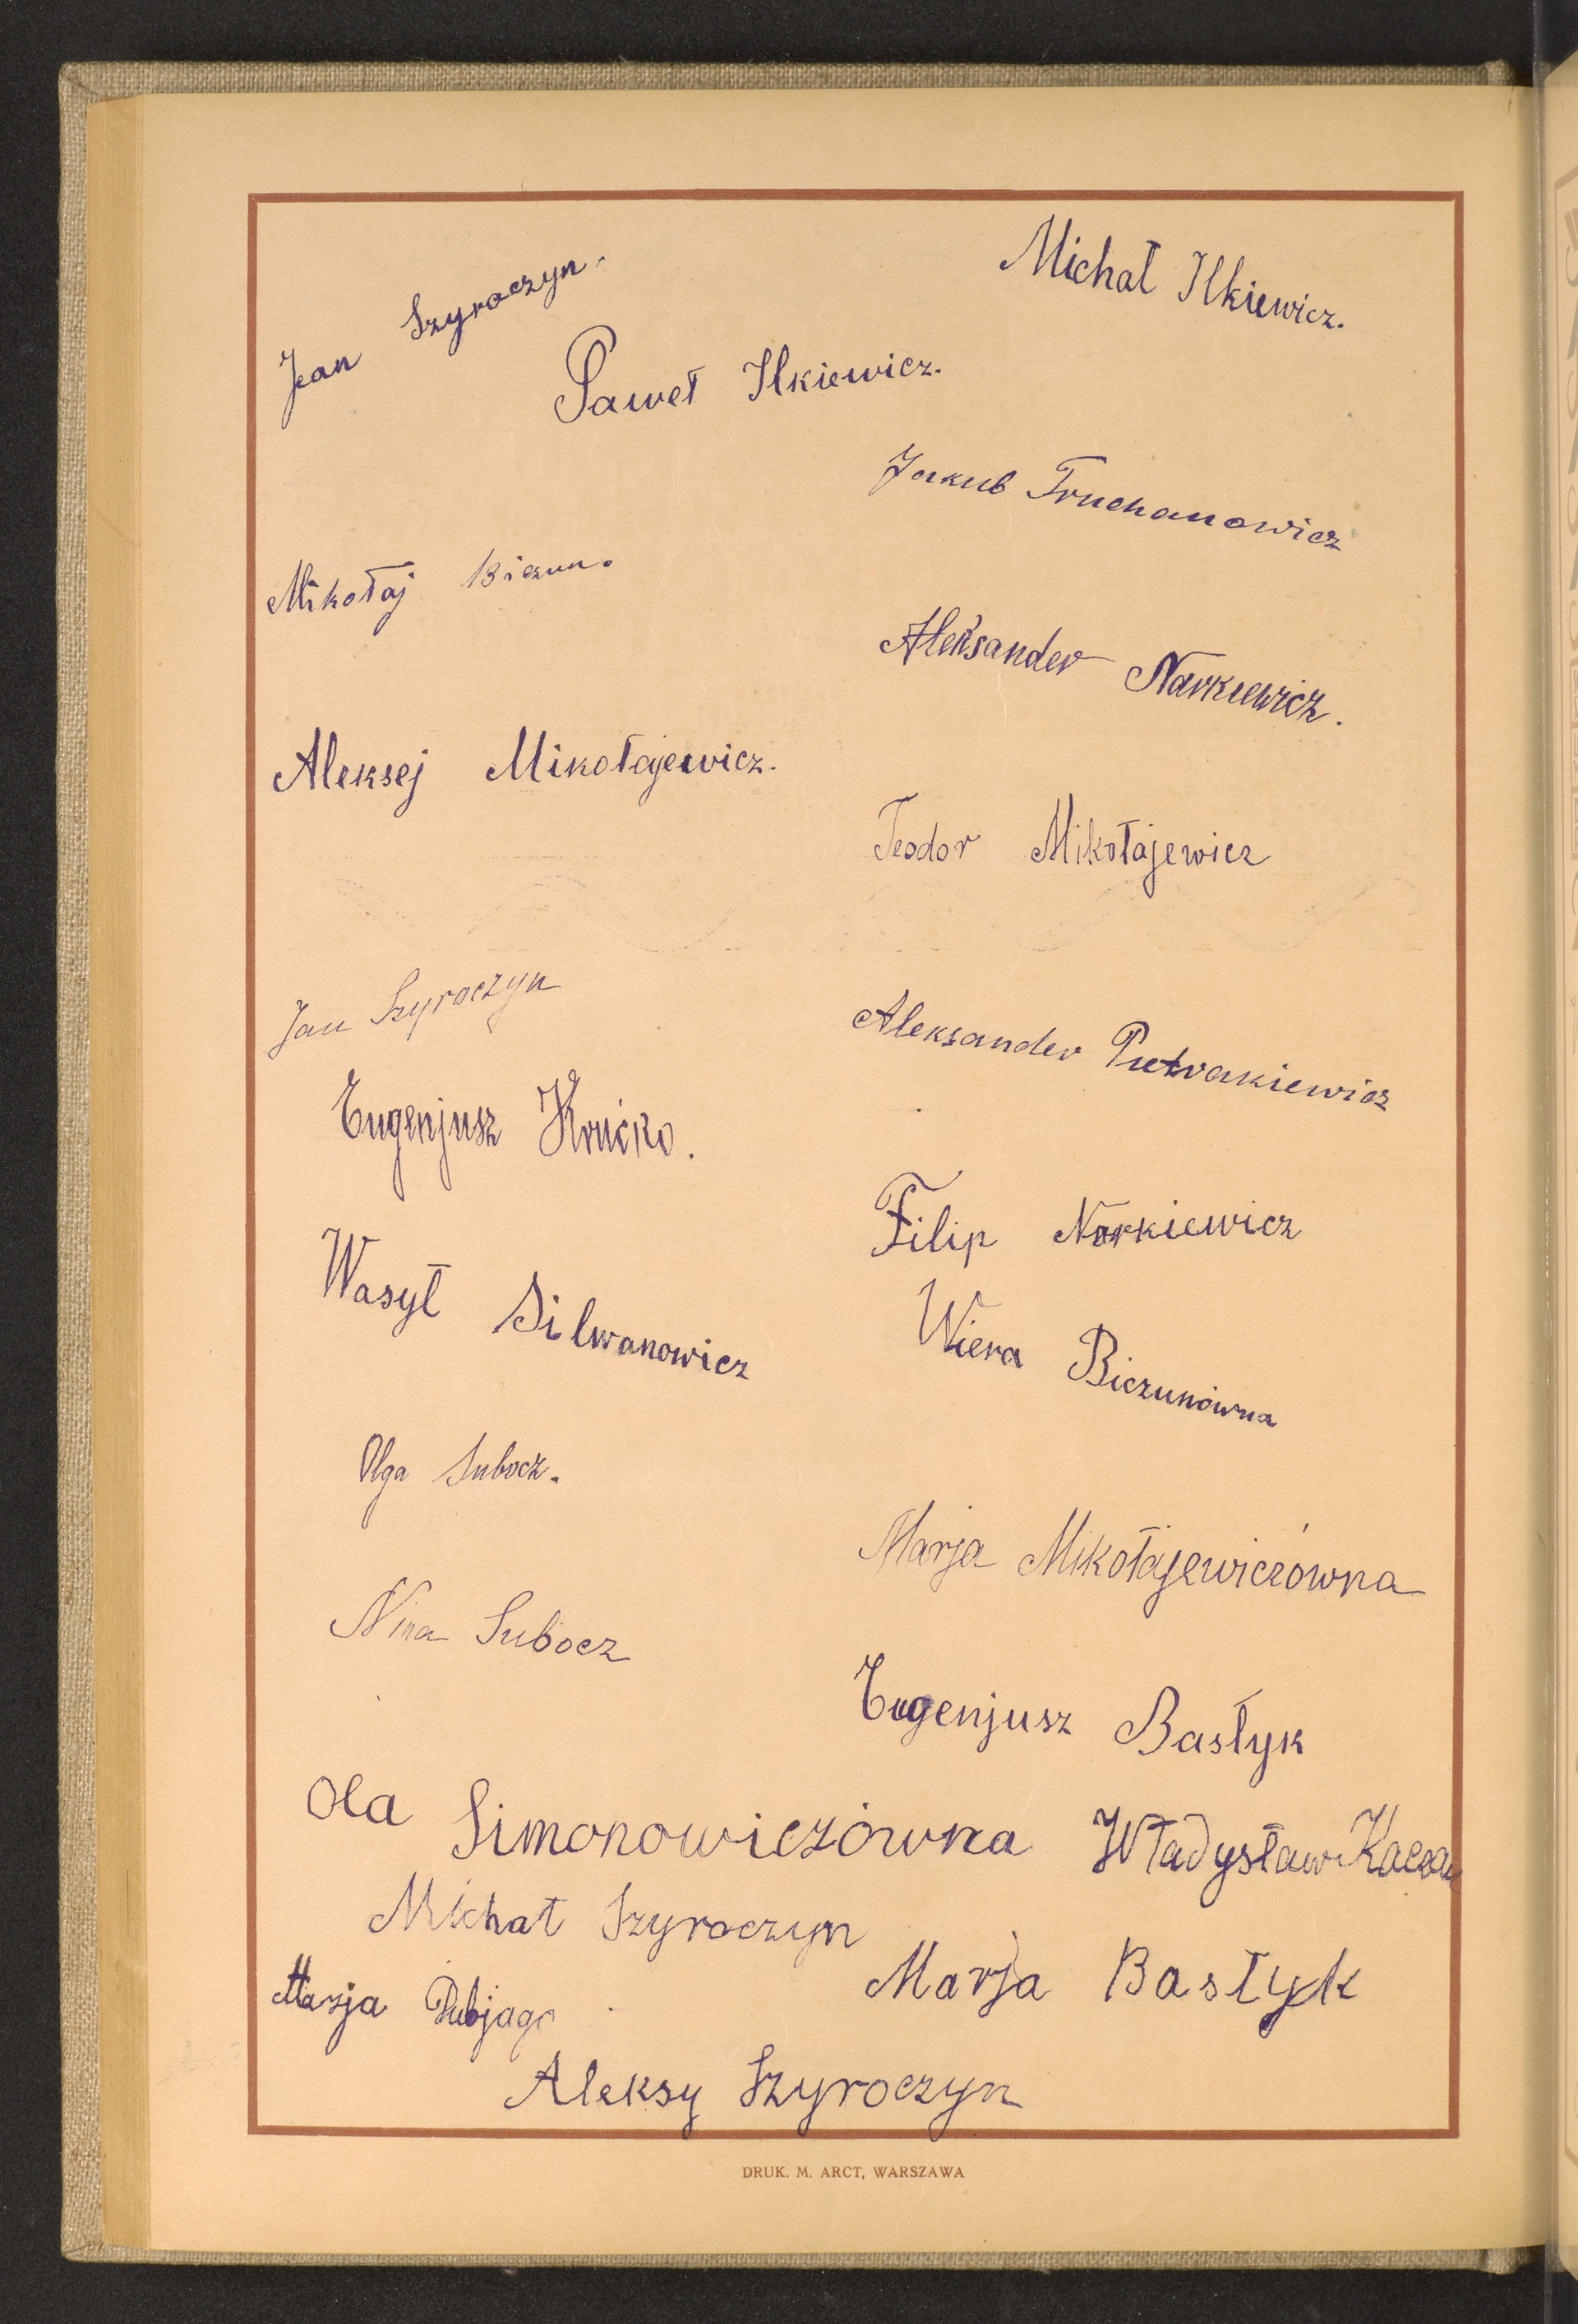 Jan Szyroczyn.
Michał Ilkiewicz.
Paweł Ilkiewicz.
Jakub Truchanowicz
Mikołaj Biczun.
Aleksander Narkiewicz.
Aleksej Mikołajewicz.
Teodor Mikołajewicz
Jan Szyroczyn
Aleksander Putrakiewicz
Eugenjusz Kručko.
Filip Narkiewicz
Wasył Silwanowicz
Wiera Biczunówna
Olga Subocz.
Marja Mikołajewiczówna
Nina Subocz
Eugenjusz Basłyk
Ola Simonowiczówna
Władysław
Michał Szyroczyn
Marja Basłyk
Marja
Aleksy Szyroczyn
DRUK. M. ARCT, WARSZAWA